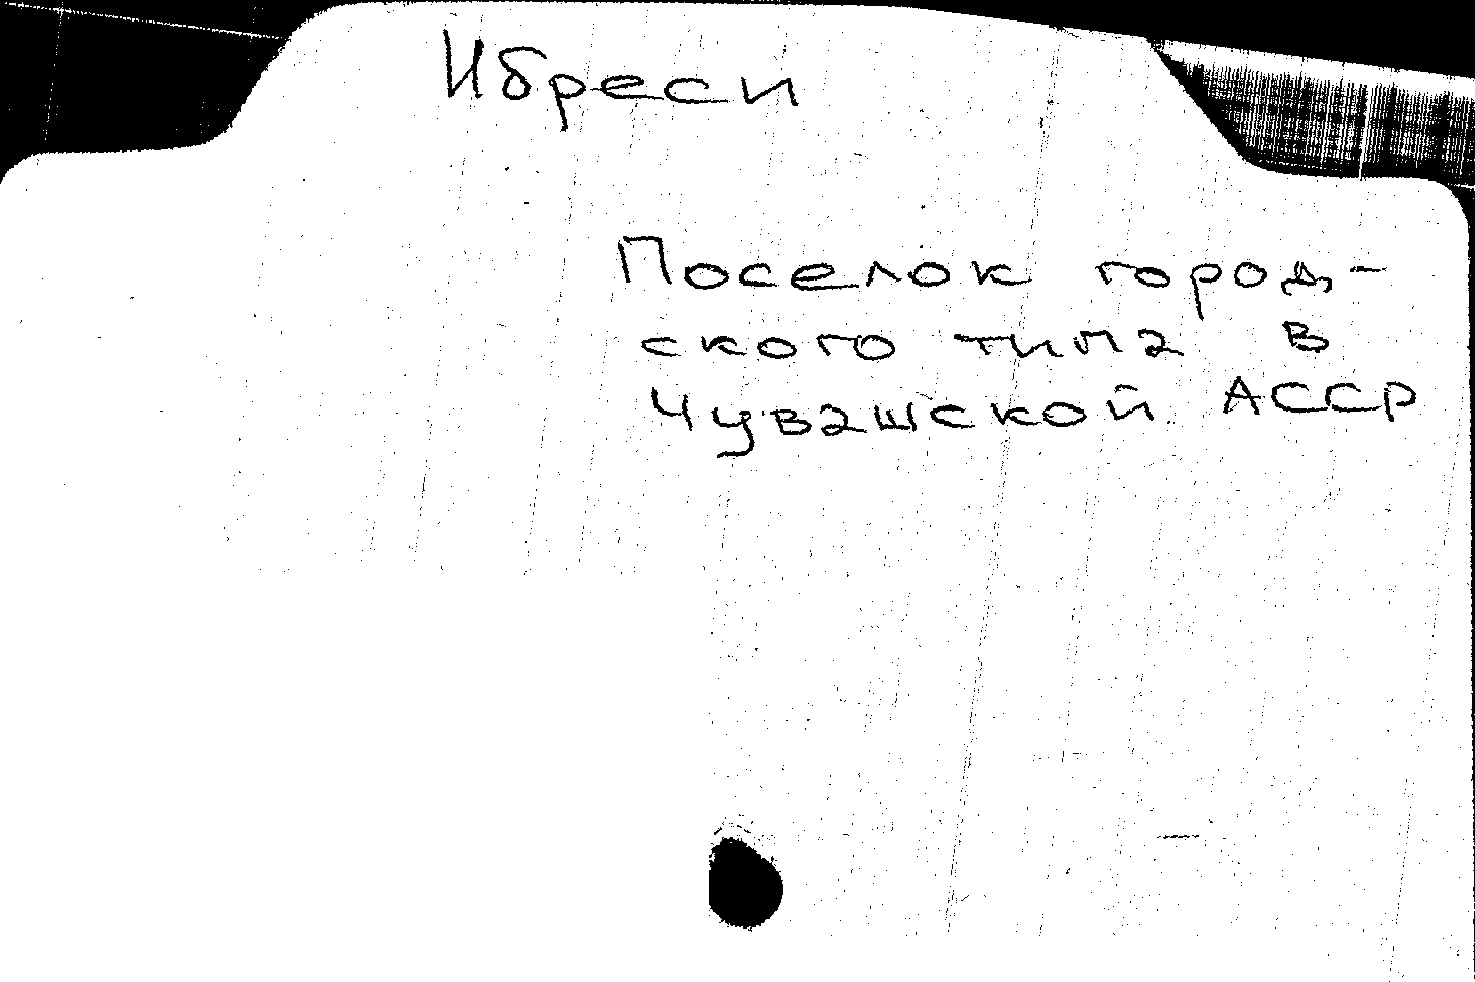 Ибреси
Поселок город-
ского типа в
Чувашской АССР